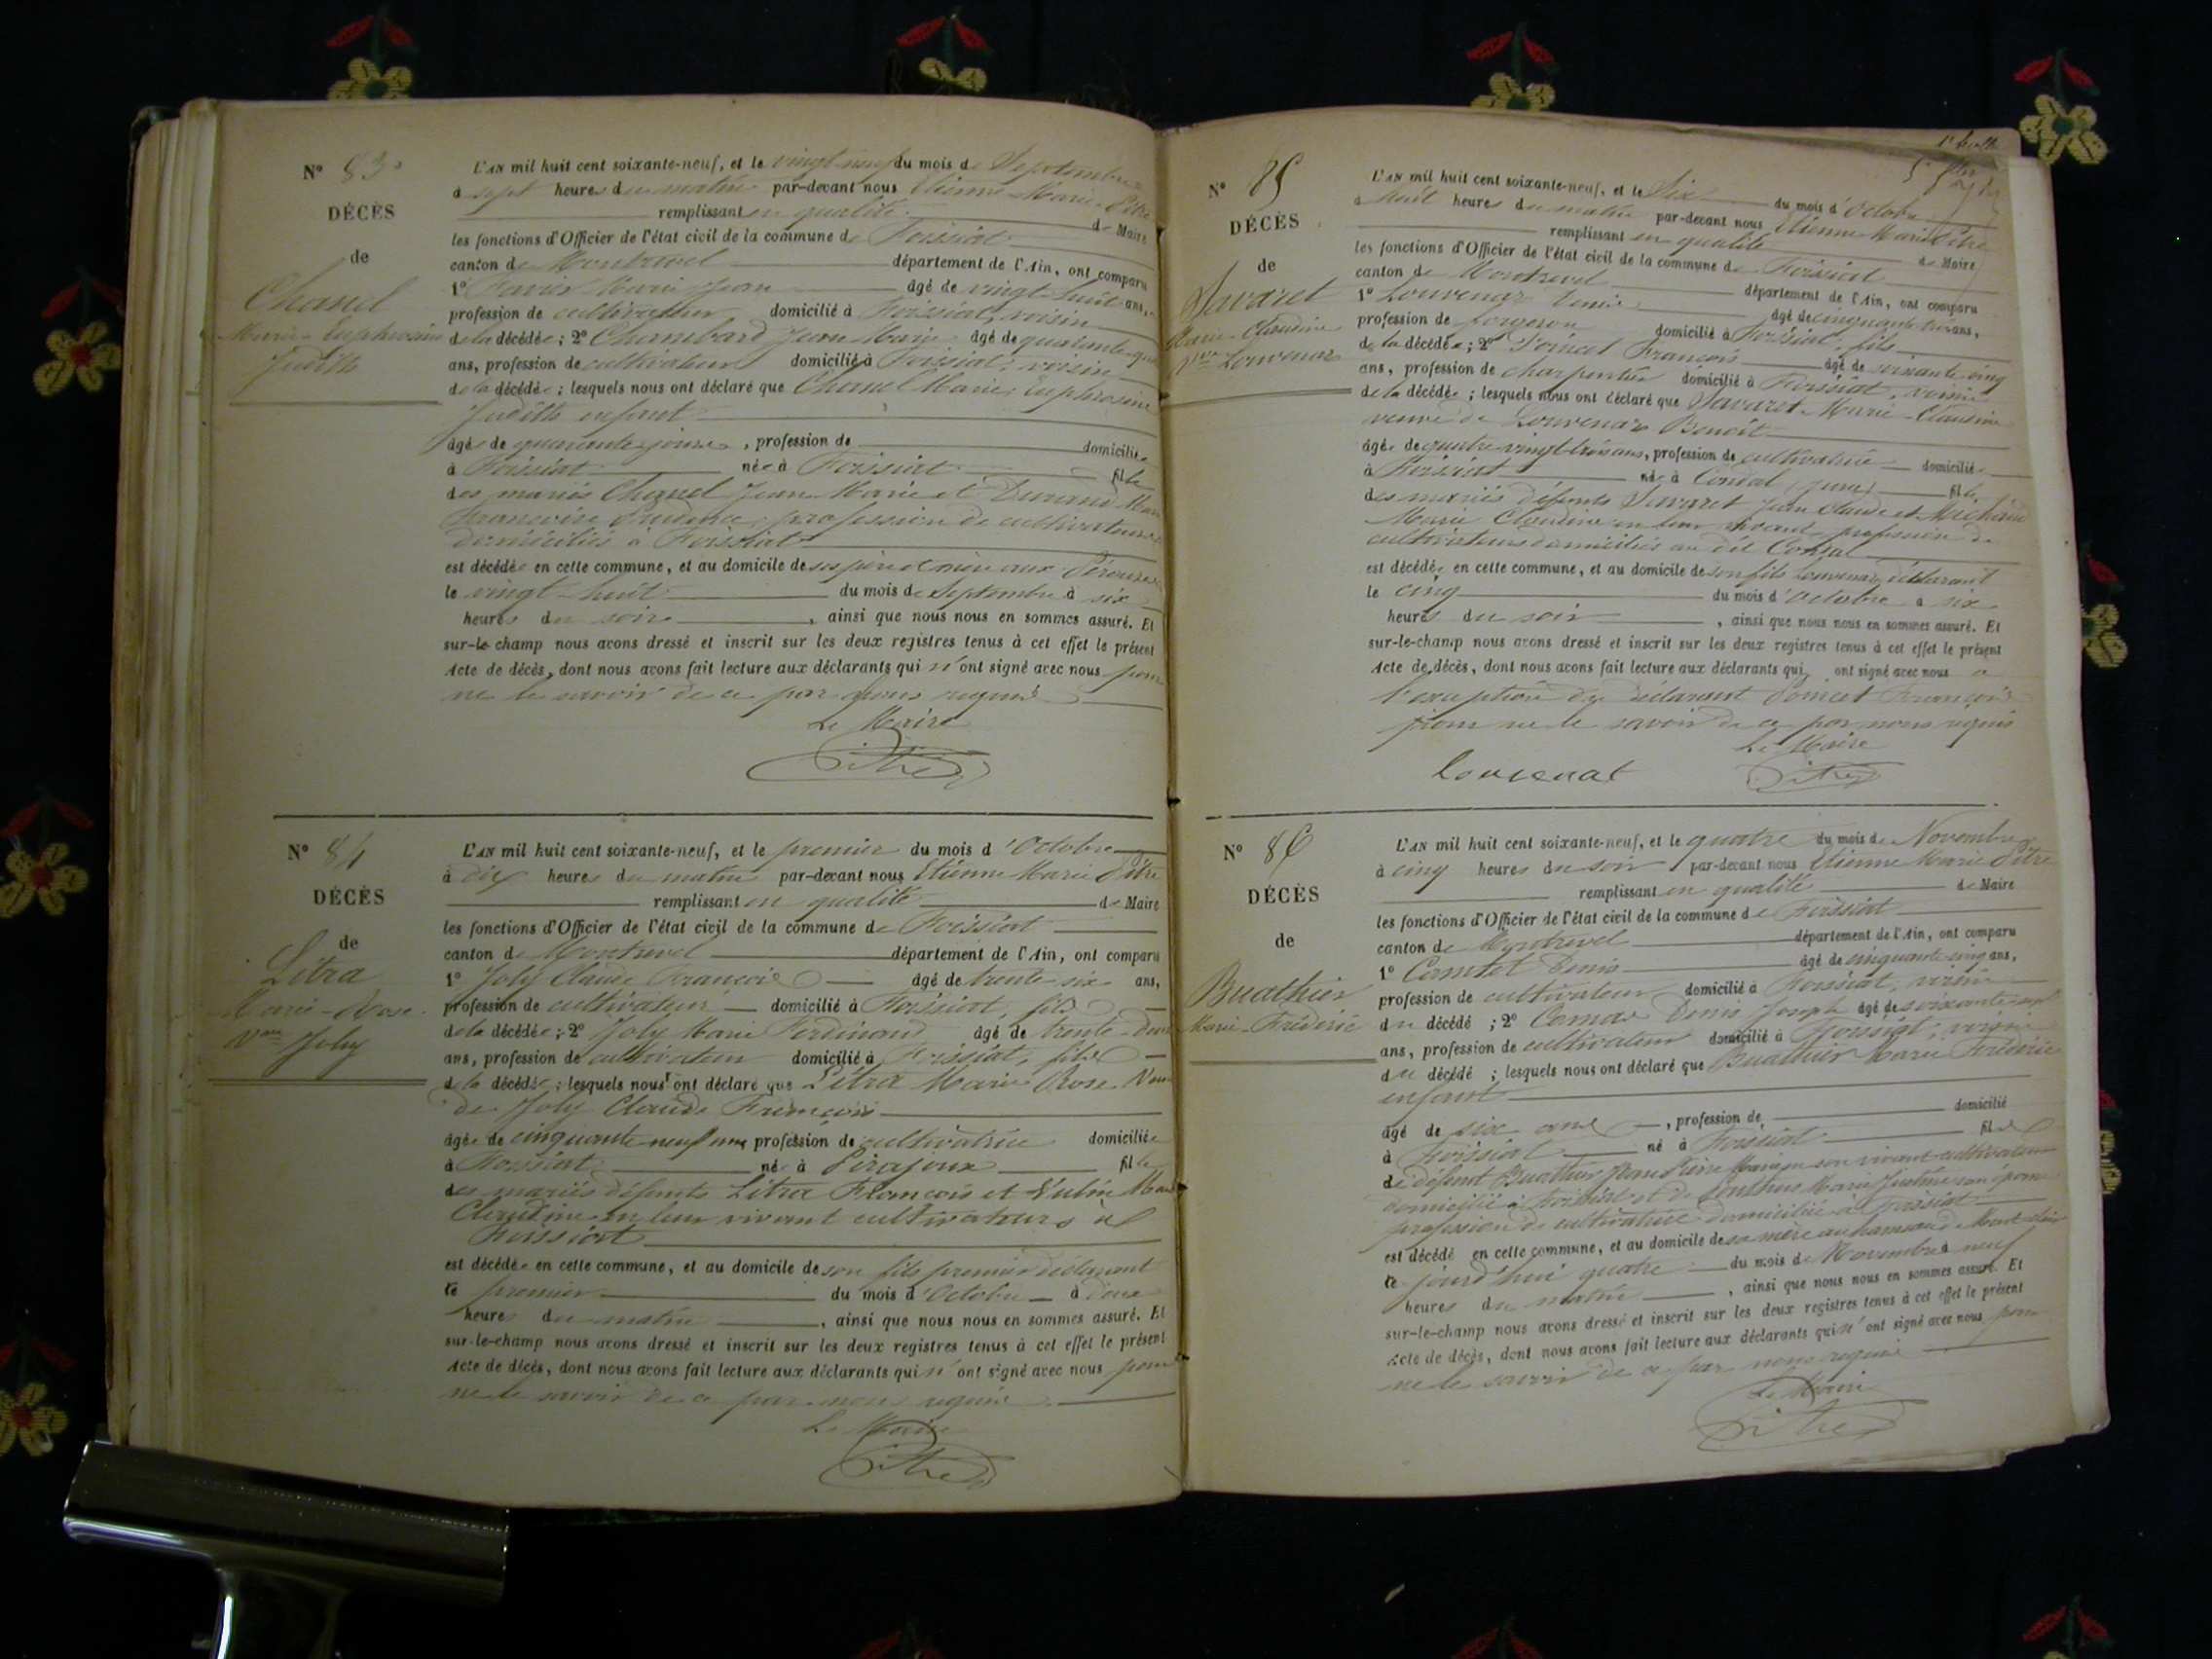 N° 83
DÉCÈS
de
Chanel
Marie-Euphrosine
Judith
L'AN mil huit cent soixante-neuf, et le vingt-neuf du mois de Septembre
à sept heures du matin par-devant nous Etienne Marie Pitre
remplissant en qualité de Maire
les fonctions d'Officier de l'état civil de la commune de Foissiat
canton de Montrevel département de l'Ain, ont comparu
1° Marie Jean âgé de vingt-huit ans,
profession de cultivateur domicilié à Foissiat, voisin
de la décédée ; 2° Chambard Jean Marie âgé de quarante
ans, profession de cultivateur domicilié à Foissiat, voisin
de la décédée ; lesquels nous ont déclaré que Chanel Marie Euphrosine
Judith enfant
âgée de quarante jours, profession de domiciliée
à Foissiat née à Foissiat fille
des mariés Chanel Jean Marie et Durand Marie
Françoise Prudence, profession de cultivateurs
domiciliés à Foissiat
est décédée en cette commune, et au domicile de ses père et mère aux
le vingt-huit du mois de Septembre à six
heures du soir, ainsi que nous nous en sommes assuré. Et
sur-le-champ nous avons dressé et inscrit sur les deux registres tenus à cet effet le présent
Acte de décès, dont nous avons fait lecture aux déclarants qui n'ont signé avec nous pour
ne le savoir de ce par nous requis
Le Maire
Pitre
N° 84
DÉCÈS
de
Litra
Marie-Rose
Vve Joly
L'AN mil huit cent soixante-neuf, et le premier du mois d'Octobre
à dix heures du matin par-devant nous Etienne Marie Pitre
remplissant en qualité de Maire
les fonctions d'Officier de l'état civil de la commune de Foissiat
canton de Montrevel département de l'Ain, ont comparu
1° Joly Claude François âgé de trente-six ans,
profession de cultivateur domicilié à Foissiat, fils
de la décédée ; 2° Joly Marie Ferdinand âgé de trente-deux
ans, profession de cultivateur domicilié à Foissiat, fils
de la décédée ; lesquels nous ont déclaré que Litra Marie Rose Veuve
de Joly Claude François
âgée de cinquante neuf ans, profession de cultivatrice domiciliée
à Foissiat née à Pirajoux fille
des mariés défunts Litra François et Vulin Marie
Claudine en leur vivant cultivateurs à
Foissiat
est décédée en cette commune, et au domicile de son fils premier déclarant
le premier du mois d'Octobre à deux
heures du matin, ainsi que nous nous en sommes assuré. Et
sur-le-champ nous avons dressé et inscrit sur les deux registres tenus à cet effet le présent
Acte de décès, dont nous avons fait lecture aux déclarants qui n'ont signé avec nous pour
ne le savoir de ce par nous requis
Le Maire
Pitre
N° 85
DÉCÈS
de
Savaret
Marie-Claudine
Vve Louvenas
L'AN mil huit cent soixante-neuf, et le Six du mois d'Octobre
à huit heures du matin par-devant nous Etienne Marie Pitre
remplissant en qualité de Maire
les fonctions d'Officier de l'état civil de la commune de Foissiat
canton de Montrevel département de l'Ain, ont comparu
1° Louvenas Denis âgé de cinquante ans,
profession de forgeron domicilié à Foissiat, fils
de la décédée ; 2° Poncet François âgé de soixante-cinq
ans, profession de charpentier domicilié à Foissiat, voisin
de la décédée ; lesquels nous ont déclaré que Savaret Marie-Claudine
veuve de Louvenas Benoît
âgée de quatre vingt trois ans, profession de cultivatrice domiciliée
à Foissiat née à Condal (Jura) fille
des mariés défunts Savaret Jean Claude et
Marie Claudine en leur vivant profession de
cultivateurs domiciliés au dit Condal
est décédée en cette commune, et au domicile de son fils Louvenas, déclarant
le cinq du mois d'Octobre à six
heures du soir, ainsi que nous nous en sommes assuré. Et
sur-le-champ nous avons dressé et inscrit sur les deux registres tenus à cet effet le présent
Acte de décès, dont nous avons fait lecture aux déclarants qui ont signé avec nous à
l'exception du déclarant Poncet François
pour ne le savoir de ce par nous requis
Le Maire
Louvenat Pitre
N° 86
DÉCÈS
de
Buathier
Marie-Frédéric
L'AN mil huit cent soixante-neuf, et le quatre du mois de Novembre
à cinq heures du soir par-devant nous Etienne Marie Pitre
remplissant en qualité de Maire
les fonctions d'Officier de l'état civil de la commune de Foissiat
canton de Montrevel département de l'Ain, ont comparu
1° Comtet Denis âgé de cinquante cinq ans,
profession de cultivateur domicilié à Foissiat, voisin
du décédé ; 2° Comas Denis Joseph âgé de soixante-sept
ans, profession de cultivateur domicilié à Foissiat, voisin
du décédé ; lesquels nous ont déclaré que Buathier Marie Frédéric
enfant
âgé de six ans, profession de domicilié
à Foissiat né à Foissiat fils
de défunt Buathier Jean Pierre Marie en son vivant cultivateur
domicilié à Foissiat et de Marie Justine son épouse
profession de cultivatrice domiciliée à Foissiat
est décédé en cette commune, et au domicile de sa mère au hameau de
le jourd'hui quatre du mois de Novembre à neuf
heures du matin, ainsi que nous nous en sommes assuré. Et
sur-le-champ nous avons dressé et inscrit sur les deux registres tenus à cet effet le présent
Acte de décès, dont nous avons fait lecture aux déclarants qui n'ont signé avec nous pour
ne le savoir de ce par nous requis
Le Maire
Pitre